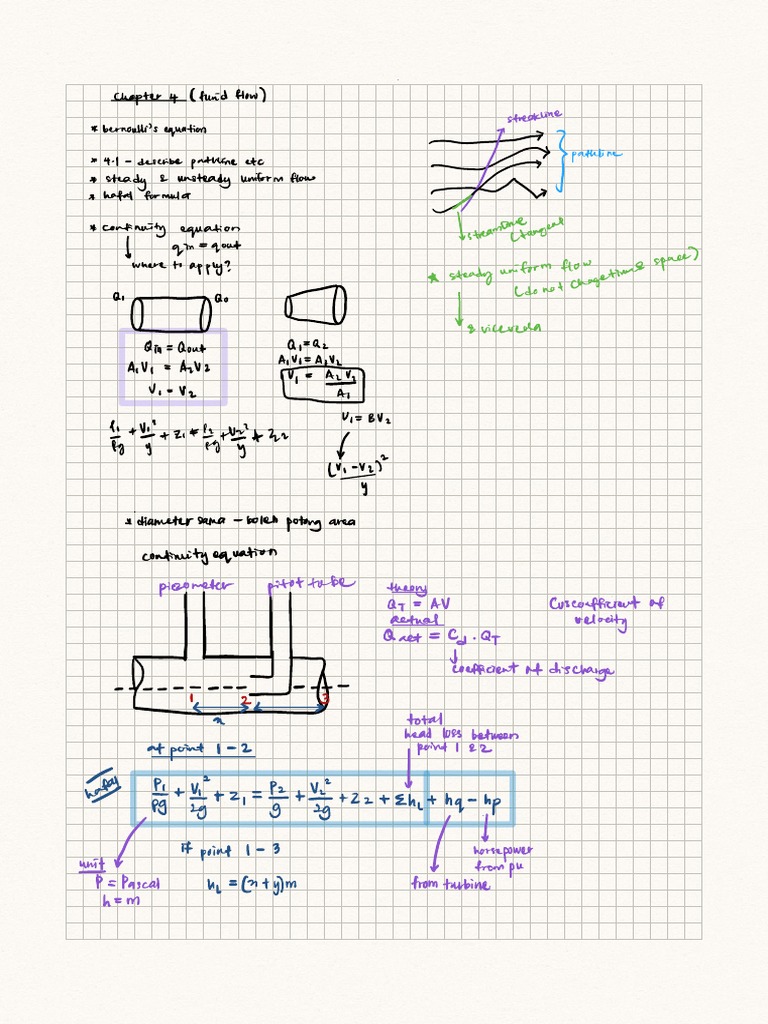 Chapter 4 (fluid flow)
* bernoulli's equation
* 4.1 - describe pathline etc
* steady & unsteady uniform flow
* hafal formula
* continuity equation
qin = qout
where to apply?
streakline
pathline
streamline
(tangent
* steady uniform flow
(do not change time & space)
& viceversa
Q₁ Q₀
Qin = Qout
A₁V₁ = A₂V₂
V₁ = V₂
Q₁ = Q₂
A₁V₁ = A₁V₂
V₁ = A₂V₂ / A₁
V₁ = 8V₂
(V₁ - V₂)² / y
P₁/ρg + V₁²/y + Z₁ = P₂/ρg + V₂²/y + Z₂
* diameter sama - boleh potong area
continuity equation
piezometer pitot tube
1 2 3
x
theory
Q_T = AV
actual
Q act = C_d . Q_T
coefficient of discharge
coefficient of
velocity
at point 1 - 2
total
head loss between
point 1 & 2
hafal
P₁/ρg + V₁²/2g + Z₁ = P₂/g + V₂²/2g + Z₂ + Σh_L + hq - hp
unit
P = Pascal
h = m
If point 1 - 3
h_L = (x + y)m
from turbine
horsepower
from pu